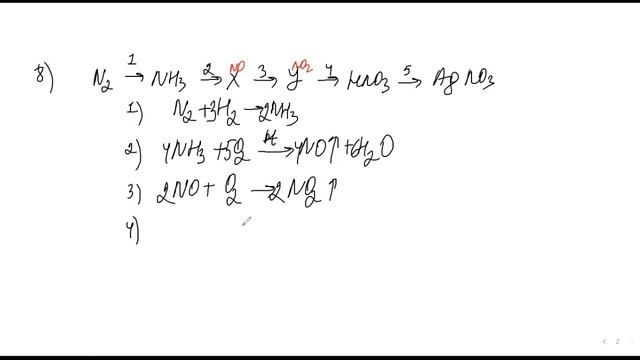 8) N2 1→ NH3 2→ X NO 3→ Y NO2 4→ HNO3 5→ AgNO3
1) N2+3H2→2NH3
2) 4NH3+5O2 Pt→ 4NO↑+6H2O
3) 2NO+O2→2NO2↑
4)
2